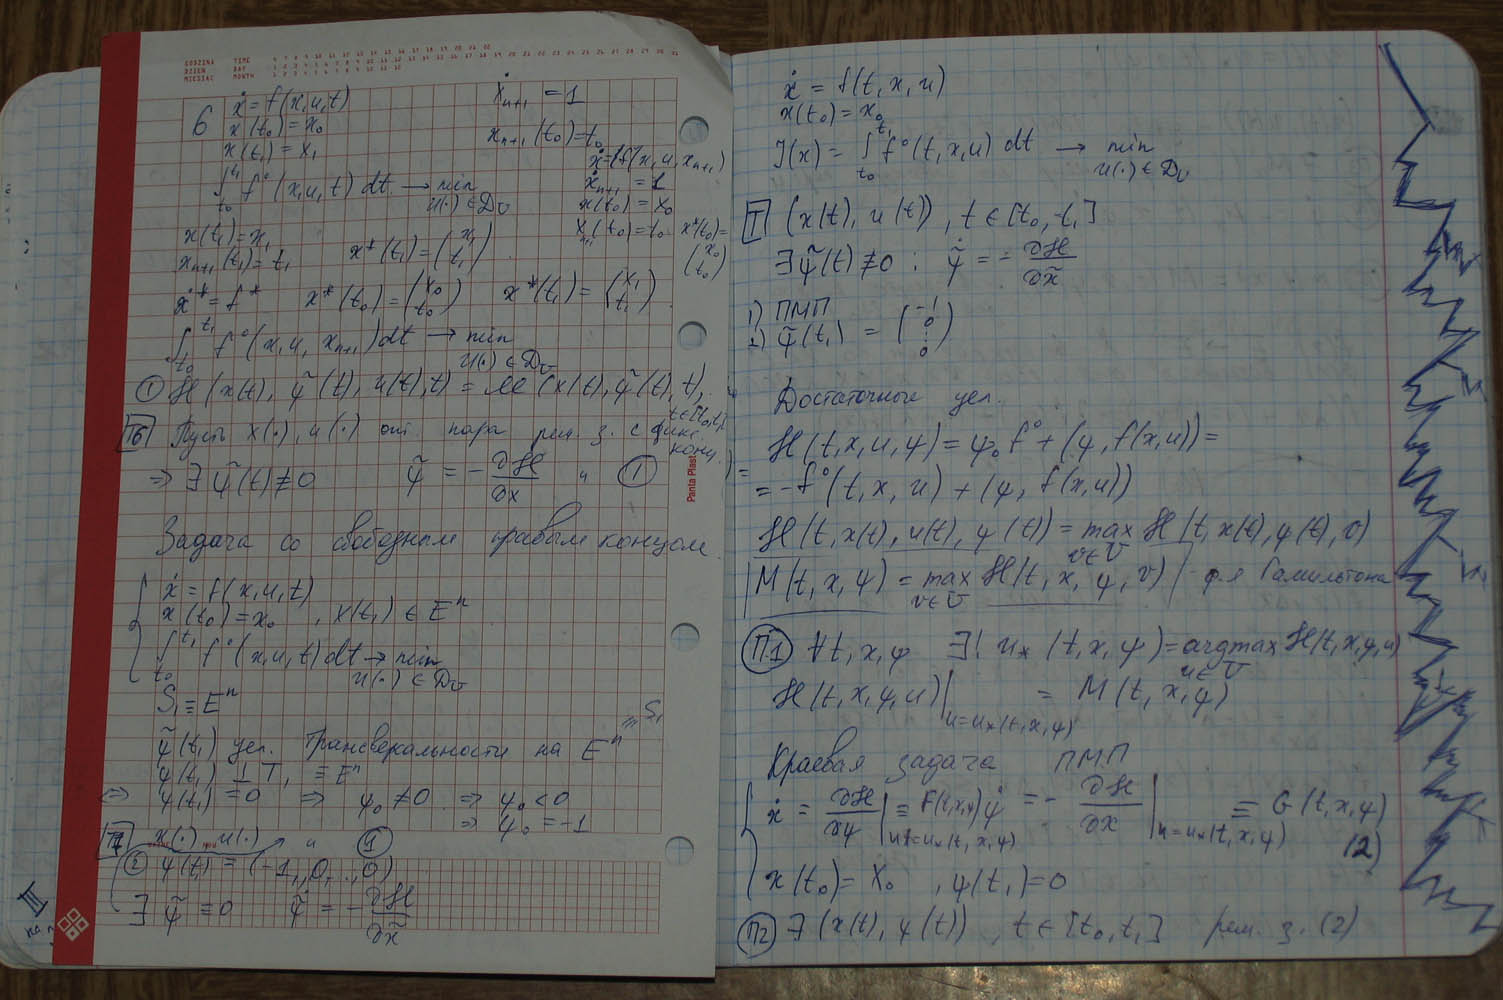 GODZINA TIME
DZIEN DAY
MIESIAC MONTH
6
ẋ = f(x,u,t)
x(t₀) = x₀
x(t₁) = x₁
∫_{t₀}^{t₁} f⁰(x,u,t) dt → min_{u(·) ∈ D_U}
ẋ_{n+1} = 1
x_{n+1}(t₀) = t₀
ẋ = f(x, u, x_{n+1})
ẋ_{n+1} = 1
x(t₀) = x₀
x_{n+1}(t₀) = t₀ x*(t₀) = (x₀ t₀)
x(t₁) = x₁
x_{n+1}(t₁) = t₁ x*(t₁) = (x₁ t₁)
ẋ* = f* x*(t₀) = (x₀ t₀) x*(t₁) = (x₁ t₁)
∫_{t₀}^{t₁} f⁰(x, u, x_{n+1}) dt → min_{u(·) ∈ D_U}
① ℋ(x(t), ψ̃(t), u(t), t) = ℳ(x(t), ψ̃(t), t), t ∈ [t₀, t₁]
Т6 Пусть x(·), u(·) опт. пара реш. з. с фикс. конц.
⇒ ∃ ψ̃(t) ≢ 0 ψ̃ = -∂ℋ/∂x и ①
Panta Plast
Задача со свободным правым концом.
ẋ = f(x,u,t)
x(t₀) = x₀, x(t₁) ∈ Eⁿ
∫_{t₀}^{t₁} f⁰(x,u,t) dt → min_{u(·) ∈ D_U}
S₁ ≡ Eⁿ
ψ̃(t₁) усл. Трансверсальности на Eⁿ ≡ S₁
ψ(t₁) ⊥ T₁ ≡ Eⁿ
⇔ ψ(t₁) = 0 ⇒ ψ₀ ≠ 0 ⇒ ψ₀ < 0
⇒ ψ₀ = -1
Т7 x(·), u(·) и ①
② ψ(t₁) = (-1, 0, ..., 0)
∃ ψ̃ ≡ 0 ψ̃̇ = -∂ℋ/∂x̃
III
ẋ = f(t, x, u)
x(t₀) = x₀
J(x) = ∫_{t₀}^{t₁} f⁰(t,x,u) dt → min_{u(·) ∈ D_U}
Т (x(t), u(t)), t ∈ [t₀, t₁]
∃ ψ̃(t) ≢ 0 : ψ̃̇ = -∂ℋ/∂x̃
1) ПМП
2) ψ̃(t₁) = (-1 0 ⋮ 0)
Достаточные усл.
ℋ(t,x,u,ψ) = ψ₀f⁰ + (ψ, f(x,u)) =
= -f⁰(t, x, u) + (ψ, f(x,u))
ℋ(t, x(t), u(t), ψ(t)) = max_{v∈U} ℋ(t, x(t), ψ(t), v)
M(t, x, ψ) = max_{v∈U} ℋ(t, x, ψ, v) - ф-я Гамильтона
П1 ∀t, x, ψ ∃! u_*(t, x, ψ) = argmax_{u∈U} ℋ(t,x,ψ,u)
ℋ(t,x,ψ,u)|_{u=u_*(t,x,ψ)} = M(t, x, ψ)
Краевая задача ПМП
ẋ = ∂ℋ/∂ψ|_{u=u_*(t,x,ψ)} ≡ F(t,x,ψ) ψ̇ = -∂ℋ/∂x|_{u=u_*(t,x,ψ)} ≡ G(t,x,ψ)
(2)
x(t₀) = x₀, ψ(t₁) = 0
П2 ∃ (x(t), ψ(t)), t ∈ [t₀, t₁] реш. з. (2)